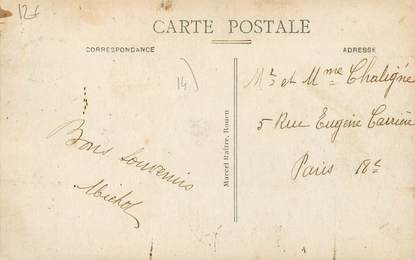 12f
CARTE POSTALE
CORRESPONDANCE
ADRESSE
14)
Mr et Mme Chaligné
5 Rue Eugène Carrière
Paris 18e
Bons souvenirs
Michel
Marcel Raitre, Rouen